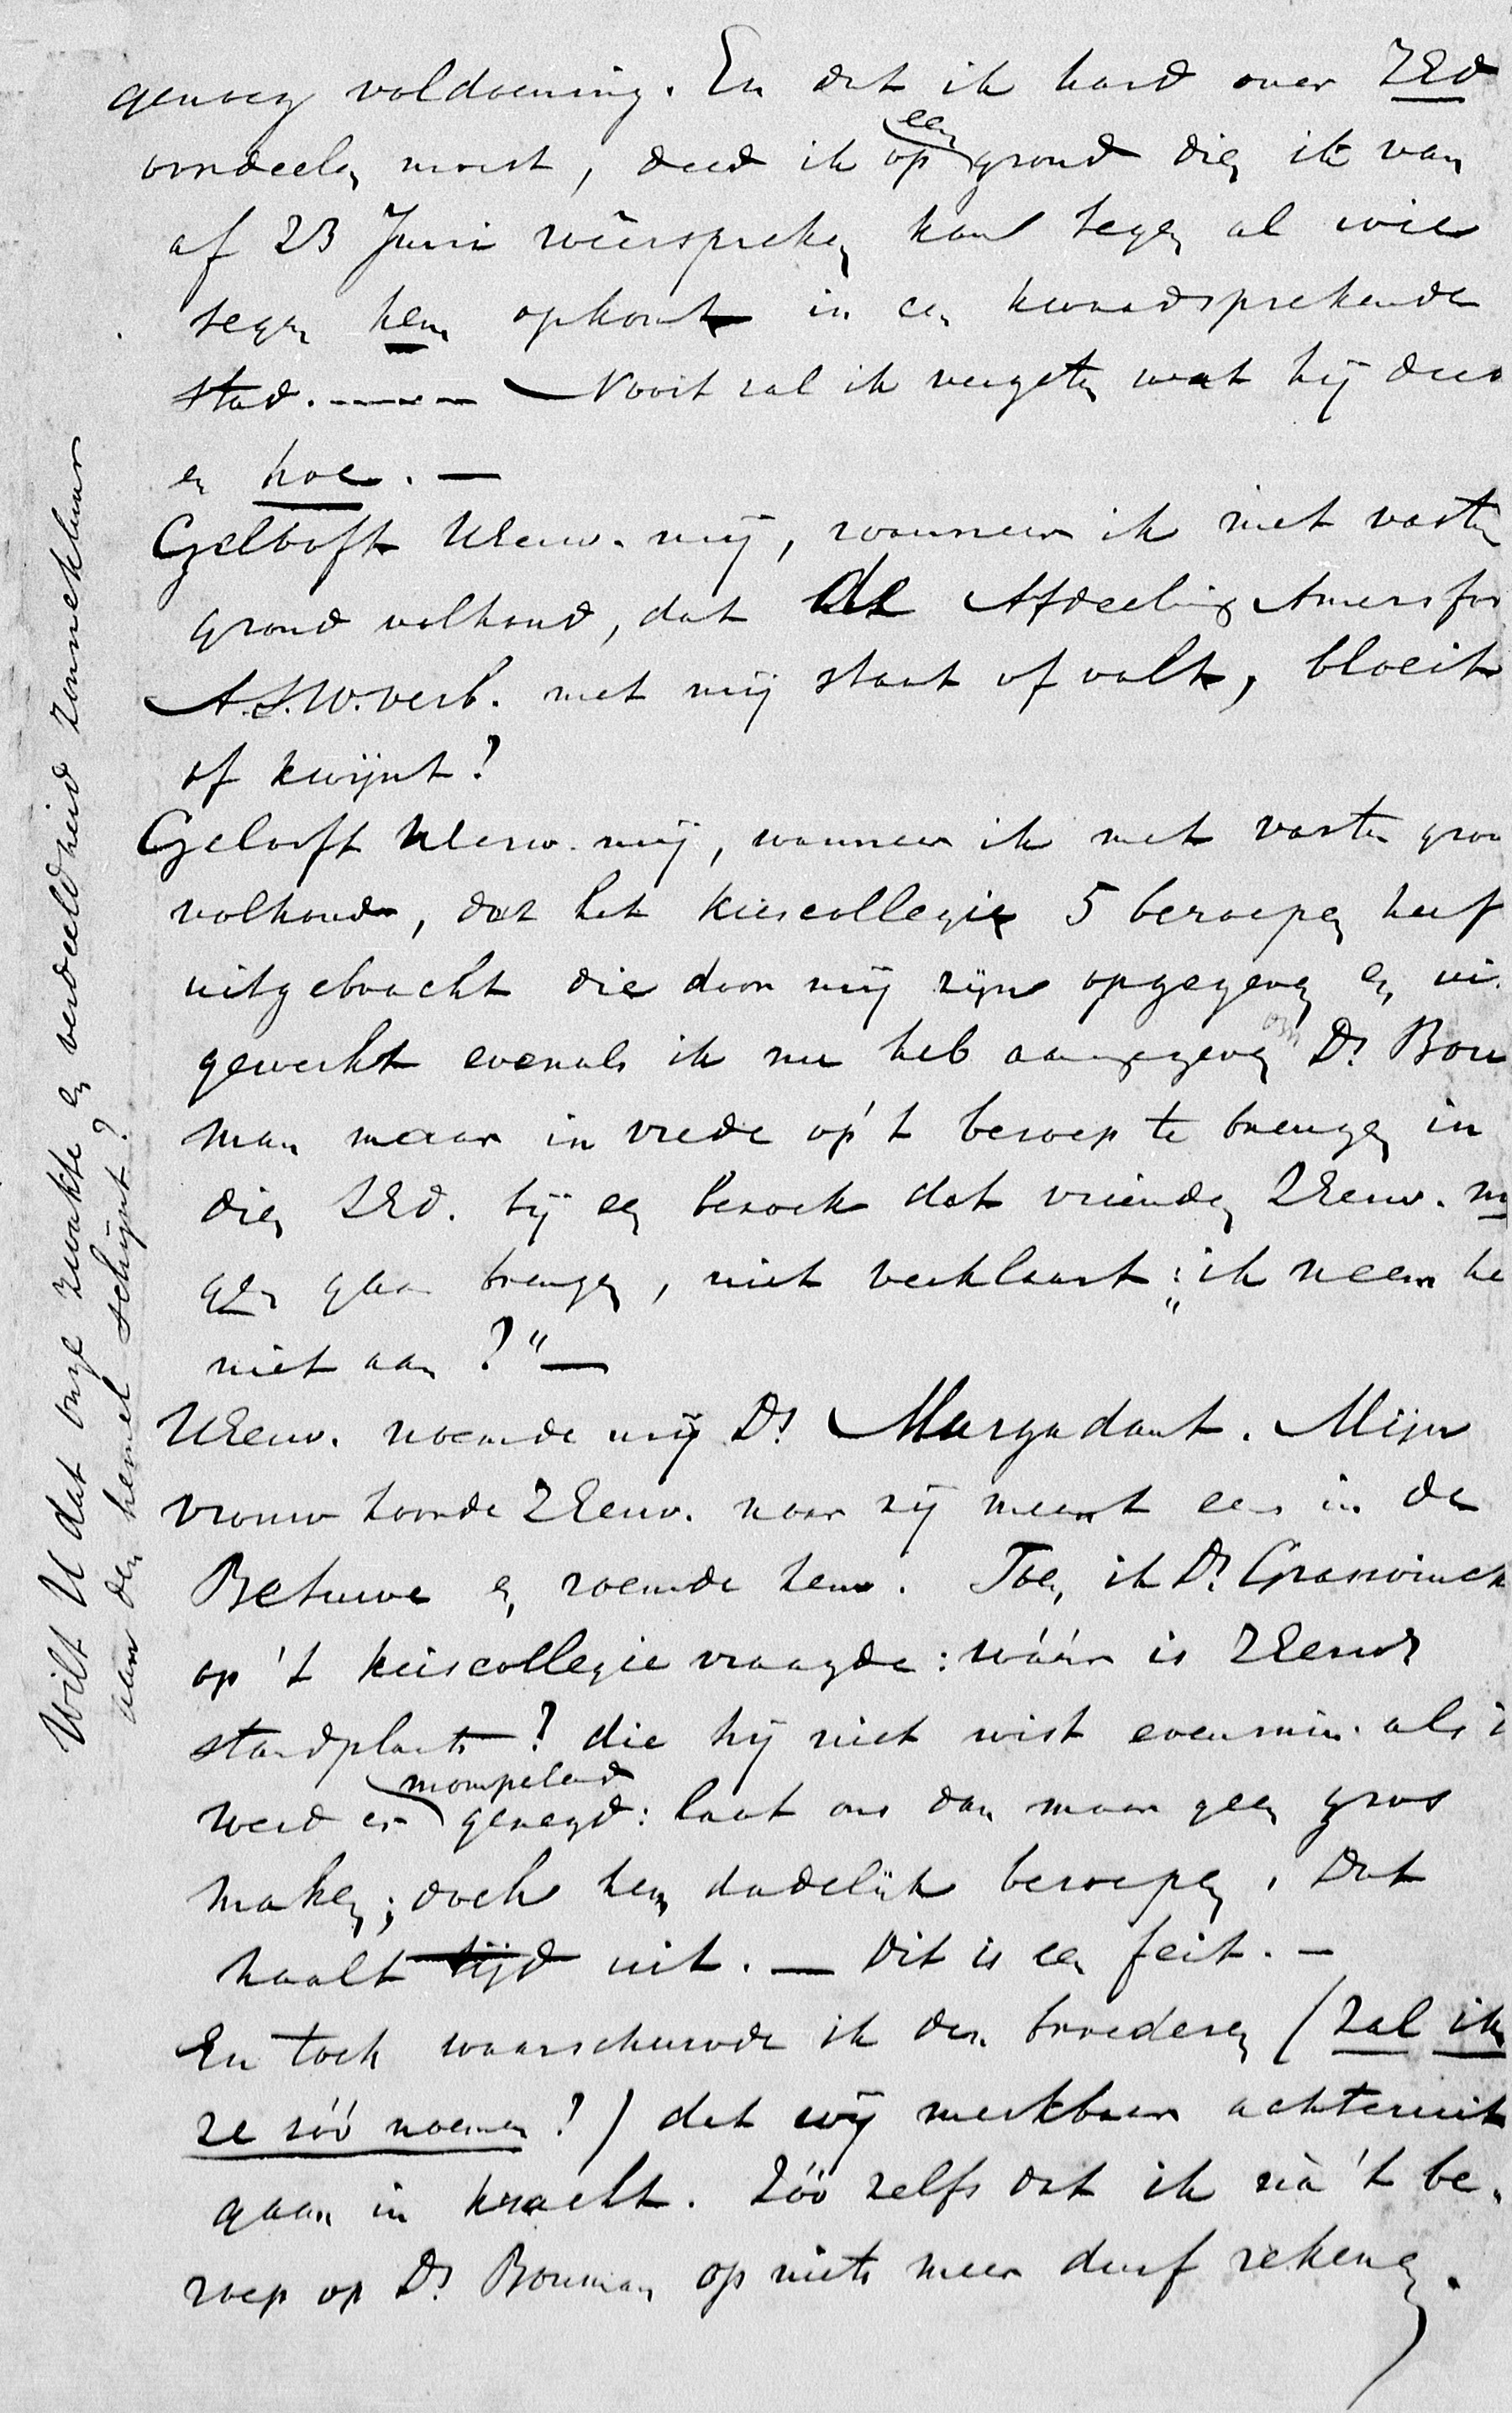 genoeg voldoening. En dat ik hard over ZEd
oordeelen moest, deed ik op een grond dien ik van
af 23 Juni weêrspreken kan tegen al wie
tegen hem opkomt in een kwaadsprekende
stad. ---- Nooit zal ik vergeten wat hij deed
en hoe. —
Gelooft UEerw. mij, wanneer ik met vasten
grond volhoud, dat de Afdeeling Amersfoo
A.S.W.verb. met mij staat of valt, bloeit
of kwijnt?
Gelooft UEerw. mij, wanneer ik met vasten gron
volhoud, dat het kiescollegie 5 beroepen heef
uitgebracht die door mij zijn opgegeven en ui
gewerkt evenals ik nu heb aangegeven om Ds. Bou
man maar in vrede op 't beroep te brengen in
dien ZEd. bij een bezoek dat vrienden ZEerw. mo
gen gaan brengen, niet verklaart: „ik neem he
niet aan?" —
UEerw. noemde mij Ds. Margadant. Mijn
vrouw hoorde ZEerw. naar zij meent eens in de
Betuwe en roemde hem. Toen ik Ds. Graswinck
op 't kiescollegie vraagde: wáár is ZEerws
standplaats? die hij niet wist evenmin als i
werd er mompelend gezegd: laat ons dan maar geen gros
maken; doch hem dadelijk beroepen. Dat
haalt tijd uit. — Dit is een feit. —
En toch waarschuwde ik den broederen (zal ik
ze zóó noemen?) dat wij merkbaar achteruit
gaan in kracht. Zóó zelfs dat ik ná 't be-
roep op Ds. Bouman op niets meer durf rekenen.
Wilt U dat onze zwakte en verdeeldheid zonneklaar
aan den hemel schijnt?